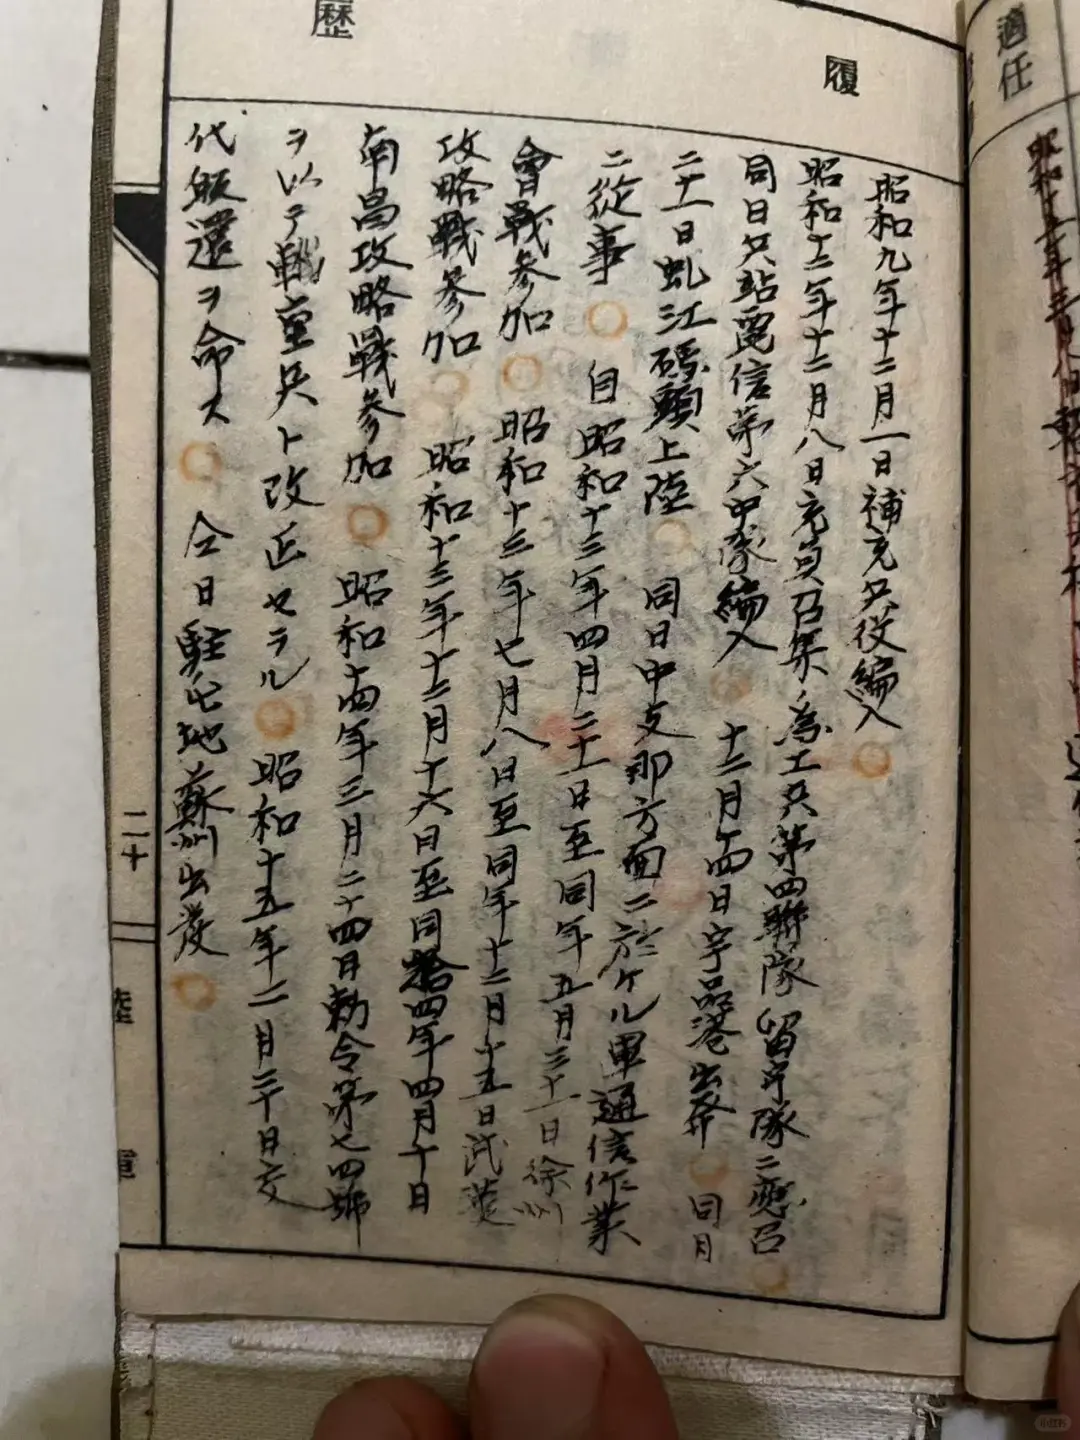 適任
履歴
昭和九年十二月一日補充兵役編入
昭和十二年十二月八日充員召集ノ為工兵第四聯隊留守隊ニ應召
同日兵站電信第六中隊編入 十二月十四日宇品港出発 同月
二十一日虬江碼頭上陸 同日中支那方面ニ於ケル軍通信作業
ニ從事 自昭和十三年四月二十一日至同年五月三十一日徐州
會戦参加 昭和十三年七月八日至同年十二月十五日武漢
攻略戰参加 昭和十三年十二月十六日至同拾四年四月十日
南昌攻略戰参加 昭和十四年三月二十四日勅令第七四號
ヲ以テ輜重兵ト改正セラル 昭和十五年二月二十日交
代皈還ヲ命ス 仝日駐屯地蘇州出發
二十
陸
軍
小红书